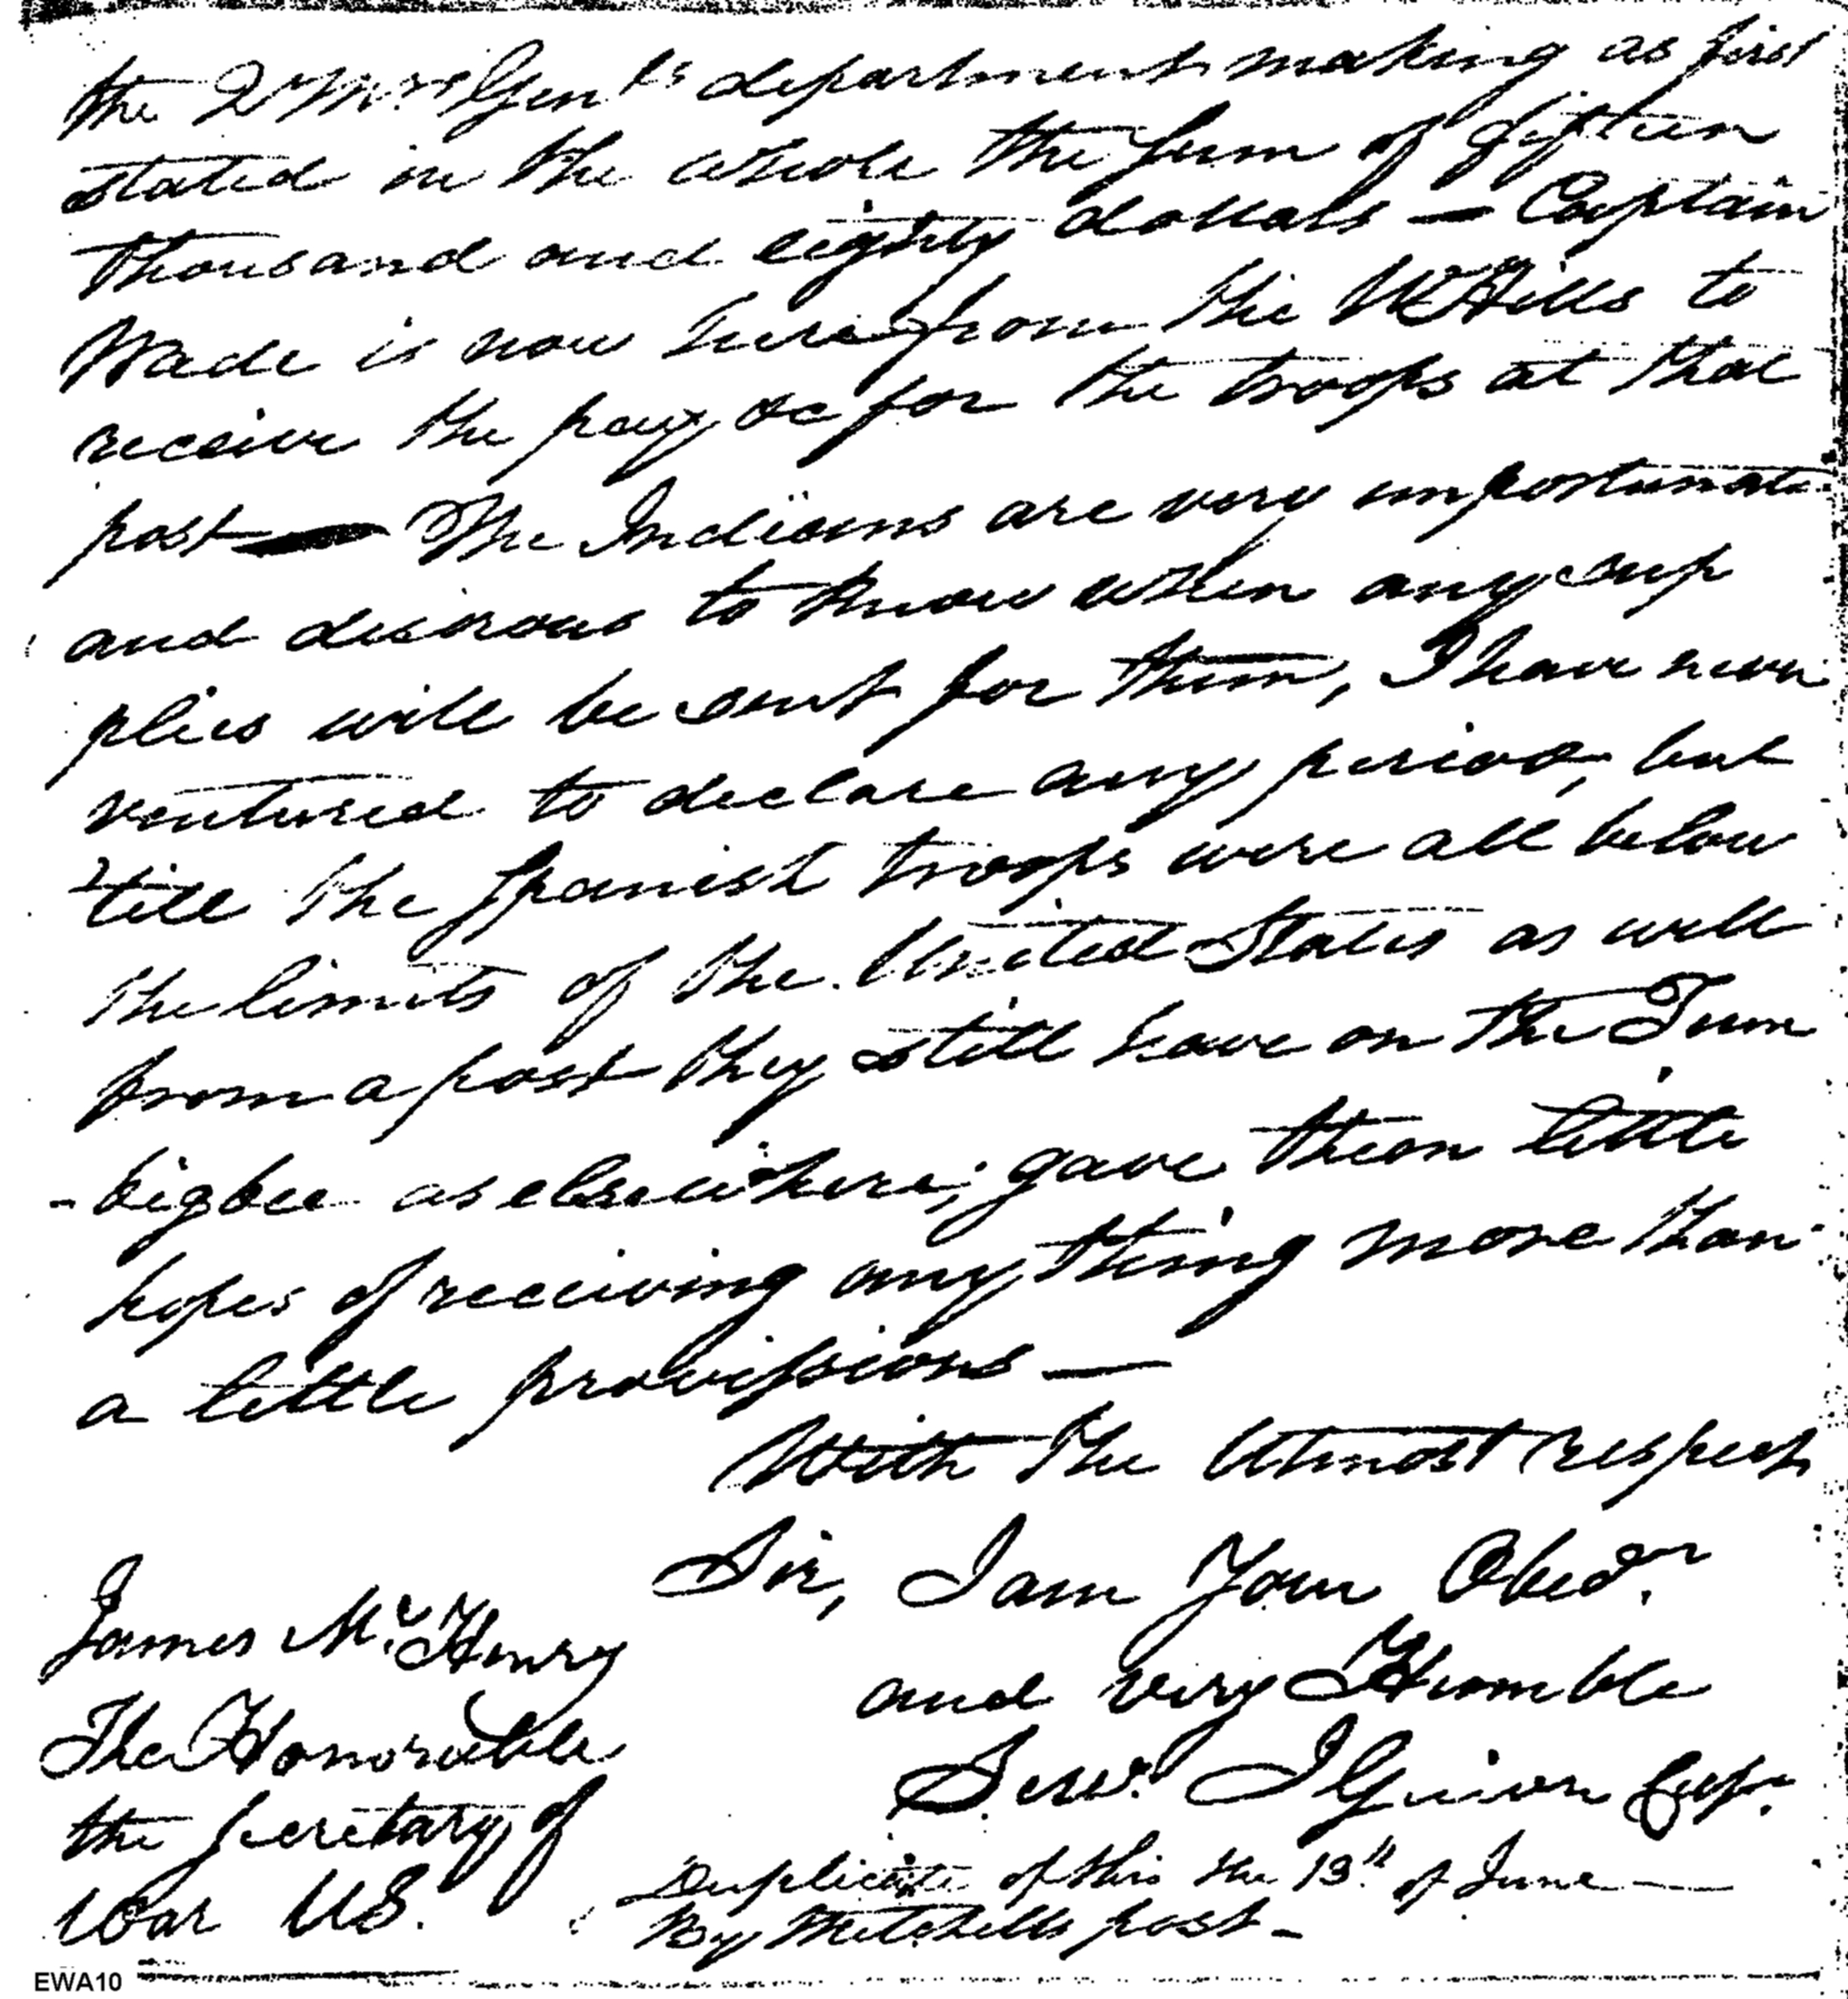 the Q Mr Genls department making as first
stated in the whole the sum of fifteen
thousand and eighty dollars — Captain
Wade is now here from the W Hills to
receive the pay &c for the troops at that
post — The Indians are very importunate
and desirous to know when any sup
plies will be sent for them, I have never
ventured to declare any period, but
'till the Spanish troops were all below
the limits of the United States as well
from a post they still have on the Tom
-bigbee as elsewhere; gave them little
hopes of receiving any thing more than
a little provissions —
With the Utmost respect
Sir, I am Your Obedt
and very Humble
Servt. I Guion Capt.
James Mc Henry
The Honorable
the Secretary of
War US.
Duplicate of this the 13th of June —
By Mitchells post -
EWA10